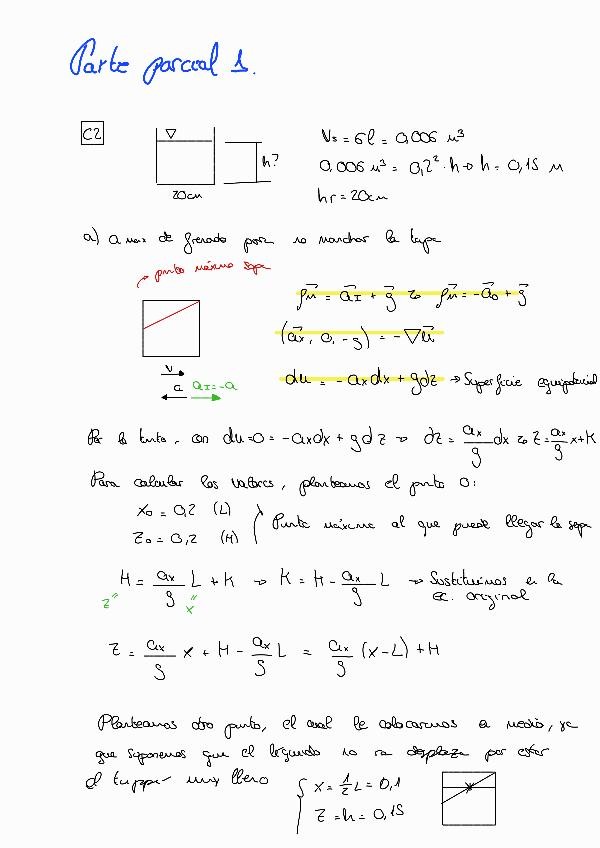 Parte parcial 1.
C2
h?
20cm
Vs = 6l = 0,006 m³
0,006 m³ = 0,2² · h → h = 0,15 m
hr = 20cm
a) a max de frenado para no manchar la tapa
→ punto máximo sopa
ρm⃗ = a⃗I + g⃗ ⇒ ρm⃗ = -a⃗o + g⃗
(a⃗x, 0, -g) = -∇u⃗
v
a aI=-a
du = -axdx + gdz → Superficie equipotencial
Por lo tanto, con du=0 = -axdx + gdz → dz = ax/g dx ⇒ z = ax/g x+K
Para calcular los valores, planteamos el punto 0:
x₀ = 0,2 (L)
z₀ = 0,2 (H)
Punto máximo al que puede llegar la sopa
H = ax/g L + K → K = H - ax/g L → Sustituimos en la
z" x" ec. original
z = ax/g x + H - ax/g L = ax/g (x-L) + H
Planteamos otro punto, el cual le colocamos en medio, ya
que suponemos que el líquido no se desplaza por estar
el tupper muy lleno
x = 1/2 L = 0,1
z = h = 0,15